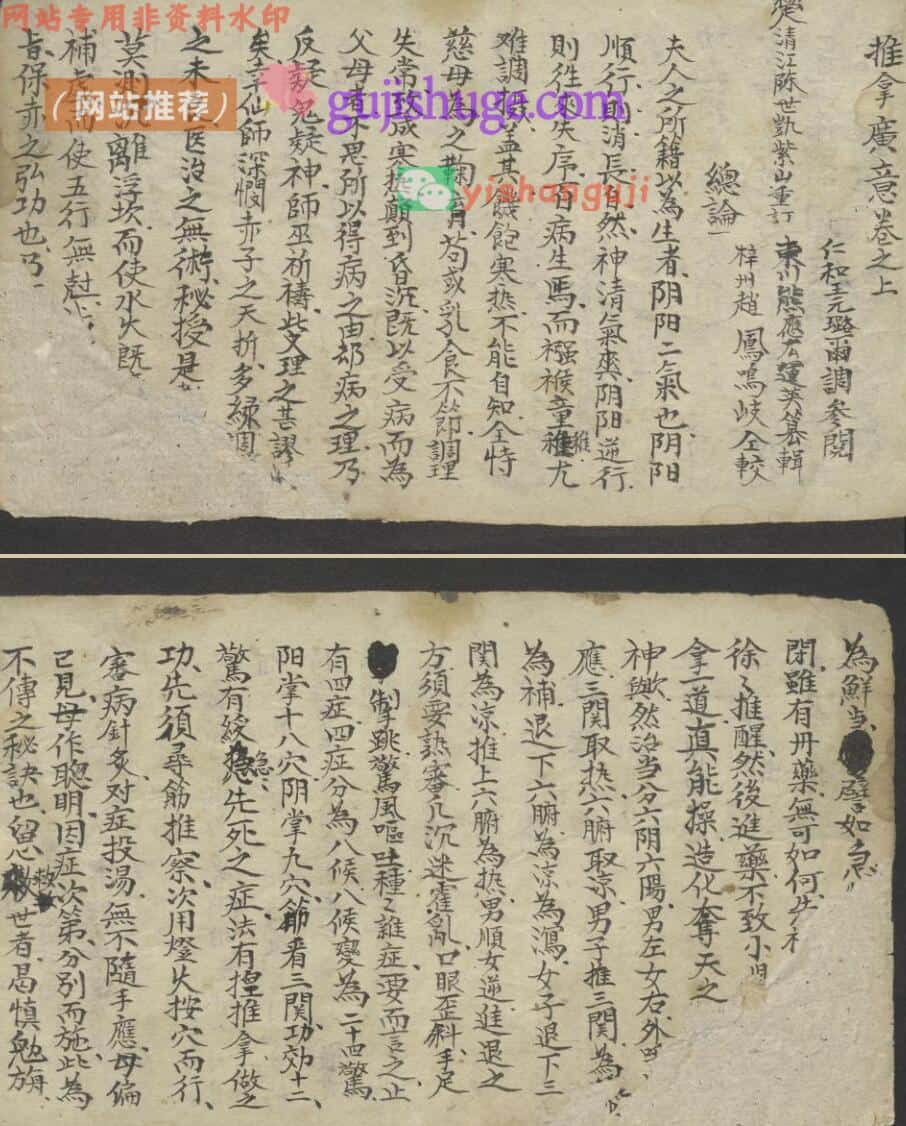 网站专用非资料水印
（网站推荐）
gujishuge.com
yishanguji
推拿廣意卷之上
清江陈世凱紫山重訂
仁和王元璐甯調參閱
東川熊應雄運英纂輯
梓州趙鳳鳴岐仝較
總論
夫人之所籍以為生者、阴阳二氣也阴阳
順行、則消長自然、神清氣爽、阴阳逆行、
則徃来失序、百病生焉、而襁褓童稚尤
难調摄、盖其饑飽寒热、不能自知、全恃
慈母為之鞠育、苟或乳食不節、調理
失常、致成寒热顛到昏沉、既以受病而為
父母者不思所以得病之由却病之理、乃
反疑鬼疑神、師巫祈禱、此文理之甚謬
矣、幸仙師深憫赤子之夭折、多缘調
之未 医治之無術、秘授是
莫測 離浮坎、而使水火既
補虚 而使五行無
旨、保赤之弘功也、
為鮮、当 譬如急
閉、雖有丹藥、無可如何、
徐々推醒、然後進藥、不致小
拿一道、真能操造化、奪天之
神欤、然治当分六阴六陽、男左女右、外
應、三関取热、六腑取凉、男子推三関為
為補、退下六腑為凉為瀉、女子退下三
関為凉、推上六腑為热、男順女逆、進退之
方、須要熟審、凡沉迷霍乱、口眼歪斜、手足
掣跳、驚風嘔吐、種々雜症、要而言之、止
有四症、四症分為八候、八候變為二十四驚、
阳掌十八穴、阴掌九穴、節看三関、功効十二、
驚有缓急先死之症、法有揑推拿做之
功、先須尋筋推察、次用燈火按穴而行、
審病針炙、对症投湯、無不隨手應、母偏
己見、母作聰明、因症次第、分别而施、此為
不傳之秘訣也、思救世者、曷慎勉旃、